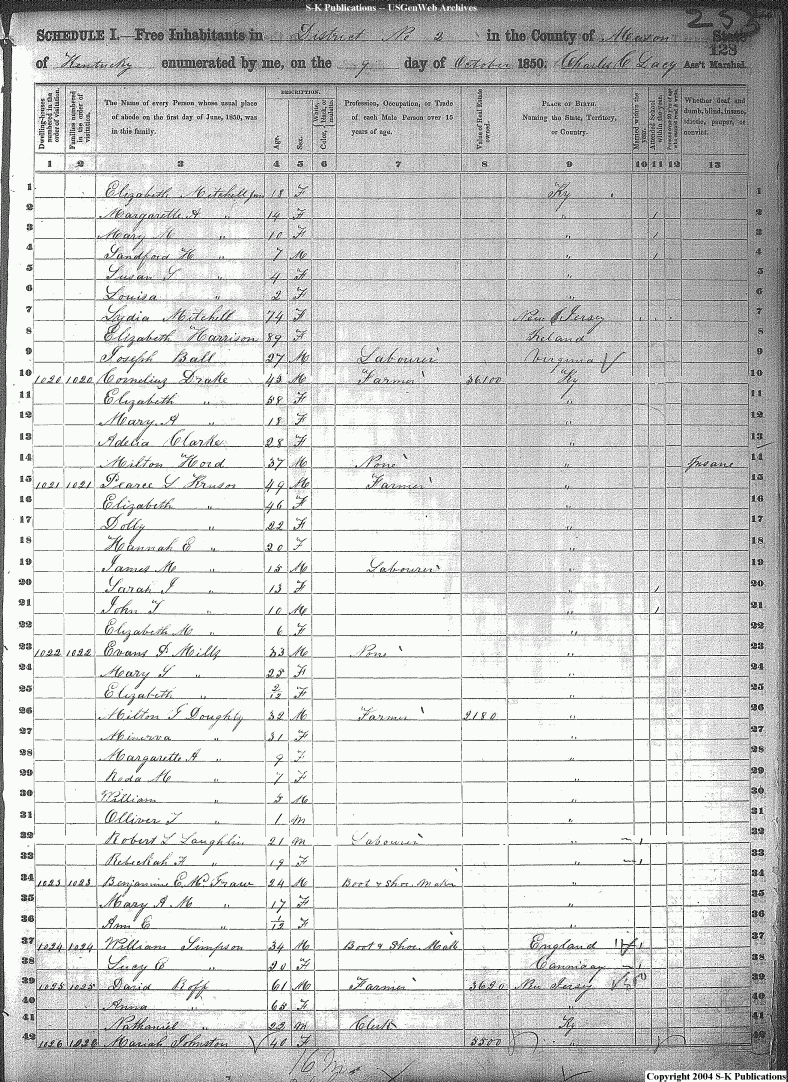 S-K Publications -- USGenWeb Archives
255
SCHEDULE I.—Free Inhabitants in District No 2 in the County of Mason State
128
of Kentucky enumerated by me, on the 9 day of October 1850. Charles C Lacy Ass't Marshal.
Dwelling-houses numbered in the order of visitation.
Families numbered in the order of visitation.
The Name of every Person whose usual place of abode on the first day of June, 1850, was in this family.
DESCRIPTION.
Age.
Sex.
White, Black, or mulatto. Color,
Profession, Occupation, or Trade of each Male Person over 15 years of age.
Value of Real Estate owned.
PLACE OF BIRTH. Naming the State, Territory, or Country.
Married within the year.
Attended School within the year.
Whether deaf and dumb, blind, insane, idiotic, pauper, or convict.
1 2 3 4 5 6 7 8 9 10 11 12 13
1 Elizabeth Mitchell jun 18 F Ky 1
2 Margarette A " 14 F " 1 2
3 Mary M " 10 F " 1 3
4 Sandford H " 7 M " 1 4
5 Susan " 4 F " 5
6 Louisa " 2 F " 6
7 Lydia Mitchell 74 F New Jersey 7
8 Elizabeth Harrison 89 F Ireland 8
9 Joseph Ball 27 M Labourer Virginia 9
10 1020 1020 Cornelius Drake 43 M Farmer 36100 Ky 10
11 Elizabeth " 38 F " 11
12 Mary A " 18 F " 12
13 Adelia Clarke 28 F " 13
14 Milton Hord 37 M None " Insane 14
15 1021 1021 Pearce L Kruson 49 M Farmer " 15
16 Elizabeth " 46 F " 16
17 Dolly " 22 F " 17
18 Hannah E " 20 F " 18
19 James M " 15 M Labourer " 19
20 Sarah J " 13 F " 1 20
21 John T " 10 M " 1 21
22 Elizabeth M " 6 F " 22
23 1022 1022 Evans P Mills 33 M None " 23
24 Mary " 25 F " 24
25 Elizabeth " 2/12 F " 25
26 Milton Doughty 32 M Farmer 2180 " 26
27 Minerva " 31 F " 27
28 Margarette A " 9 F " 28
29 Roda M " 7 F " 29
30 William " 3 M " 30
31 Olliver T " 1 M " 31
32 Robert L Laughlin 21 M Labourer " 1 32
33 Rebeckah " 19 F " 1 33
34 1023 1023 Benjamine E Mc Fraw 24 M Boot & Shoe Maker " 34
35 Mary A M " 17 F " 35
36 Ann E " 1/12 F " 36
37 1024 1024 William Simpson 34 M Boot & Shoe Mak England 1 37
38 Lucy C " 20 F 1 38
39 1025 1025 David Roff 61 M Farmer 3620 New Jersey 39
40 Anna " 65 F " 40
41 Nathaniel " 22 M Clerk Ky 41
42 1026 1026 Mariah Johnston 40 F 5500 " 42
16 M
Copyright 2004 S-K Publications